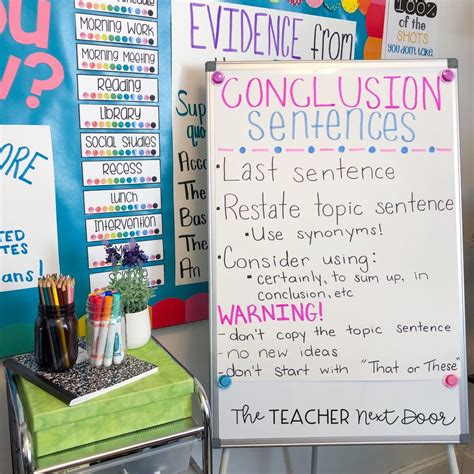 YOU
?
Morning Work
Morning Meeting
Reading
Library
Social Studies
Recess
Lunch
Intervention
ORE
ans!
EVIDENCE from
Sup
quo
Acco
The
Bas
The
An
100%
of the
SHOTS
you don't take
CONCLUSION
Sentences
• Last sentence
• Restate topic sentence
• Use synonyms!
• Consider using:
• certainly, to sum up, in
conclusion, etc.
WARNING!
- don't copy the topic sentence
- no new ideas
- don't start with "That or These"
The TEACHER Next Door